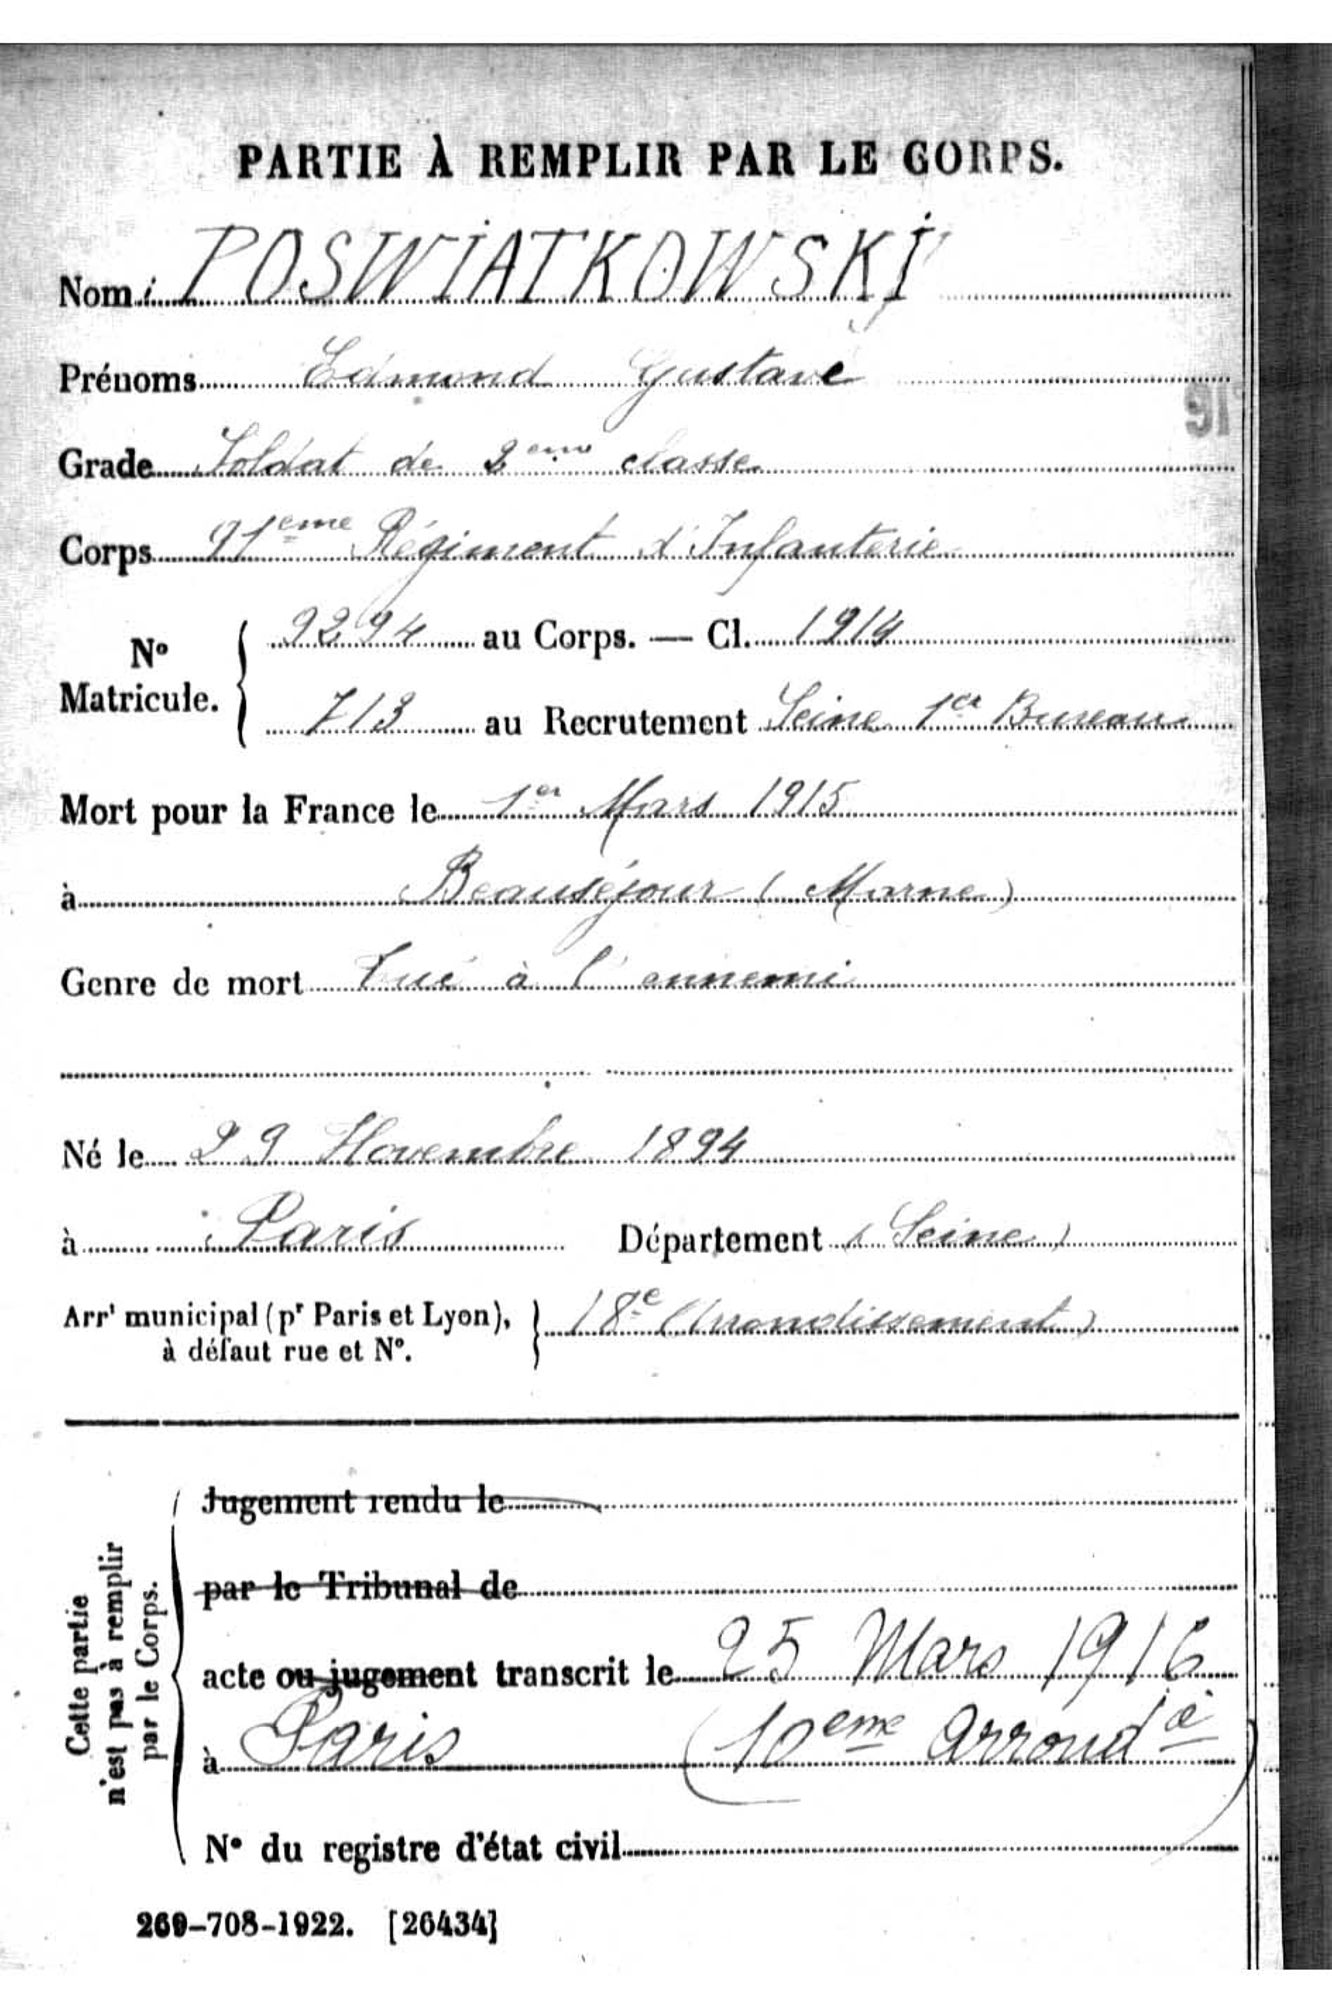 PARTIE À REMPLIR PAR LE CORPS.
Nom : POSWIATKOWSKI
Prénoms Edmond Gustave
91
Grade Soldat de 2eme classe
Corps 91eme Régiment d'Infanterie
N° Matricule. { 9294 au Corps. — Cl. 1914
713 au Recrutement Seine 1er Bureau
Mort pour la France le 1er Mars 1915
à Beauséjour (Marne)
Genre de mort Tué à l'ennemi
Né le 29 Novembre 1894
à Paris Département (Seine)
Arrt municipal (pr Paris et Lyon), } 18e (Arrondissement)
à défaut rue et N°.
Cette partie
n'est pas à remplir
par le Corps.
Jugement rendu le
par le Tribunal de
acte ou jugement transcrit le 25 Mars 1916
à Paris (10eme arrondt)
N° du registre d'état civil
269-708-1922. [26434]